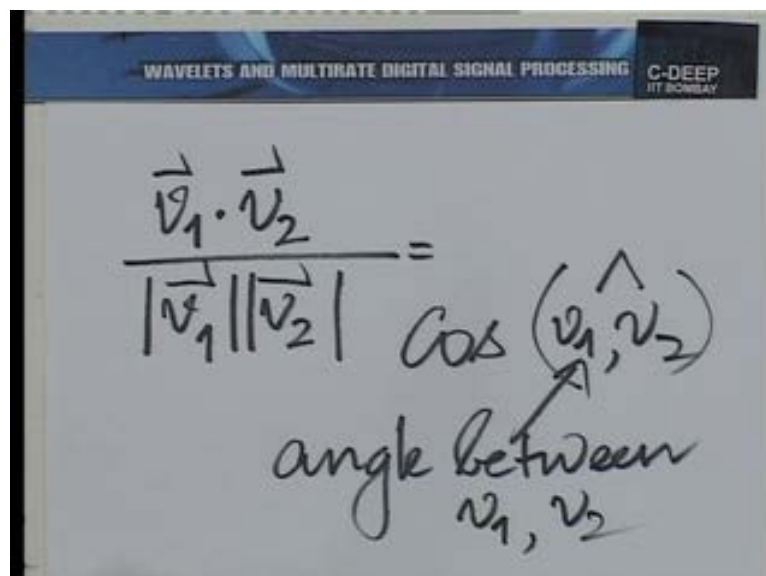 WAVELETS AND MULTIRATE DIGITAL SIGNAL PROCESSING
C-DEEP
IIT BOMBAY
v⃗₁ · v⃗₂
|v⃗₁||v⃗₂|
=
Cos (v₁,^v₂)
angle between
v₁, v₂